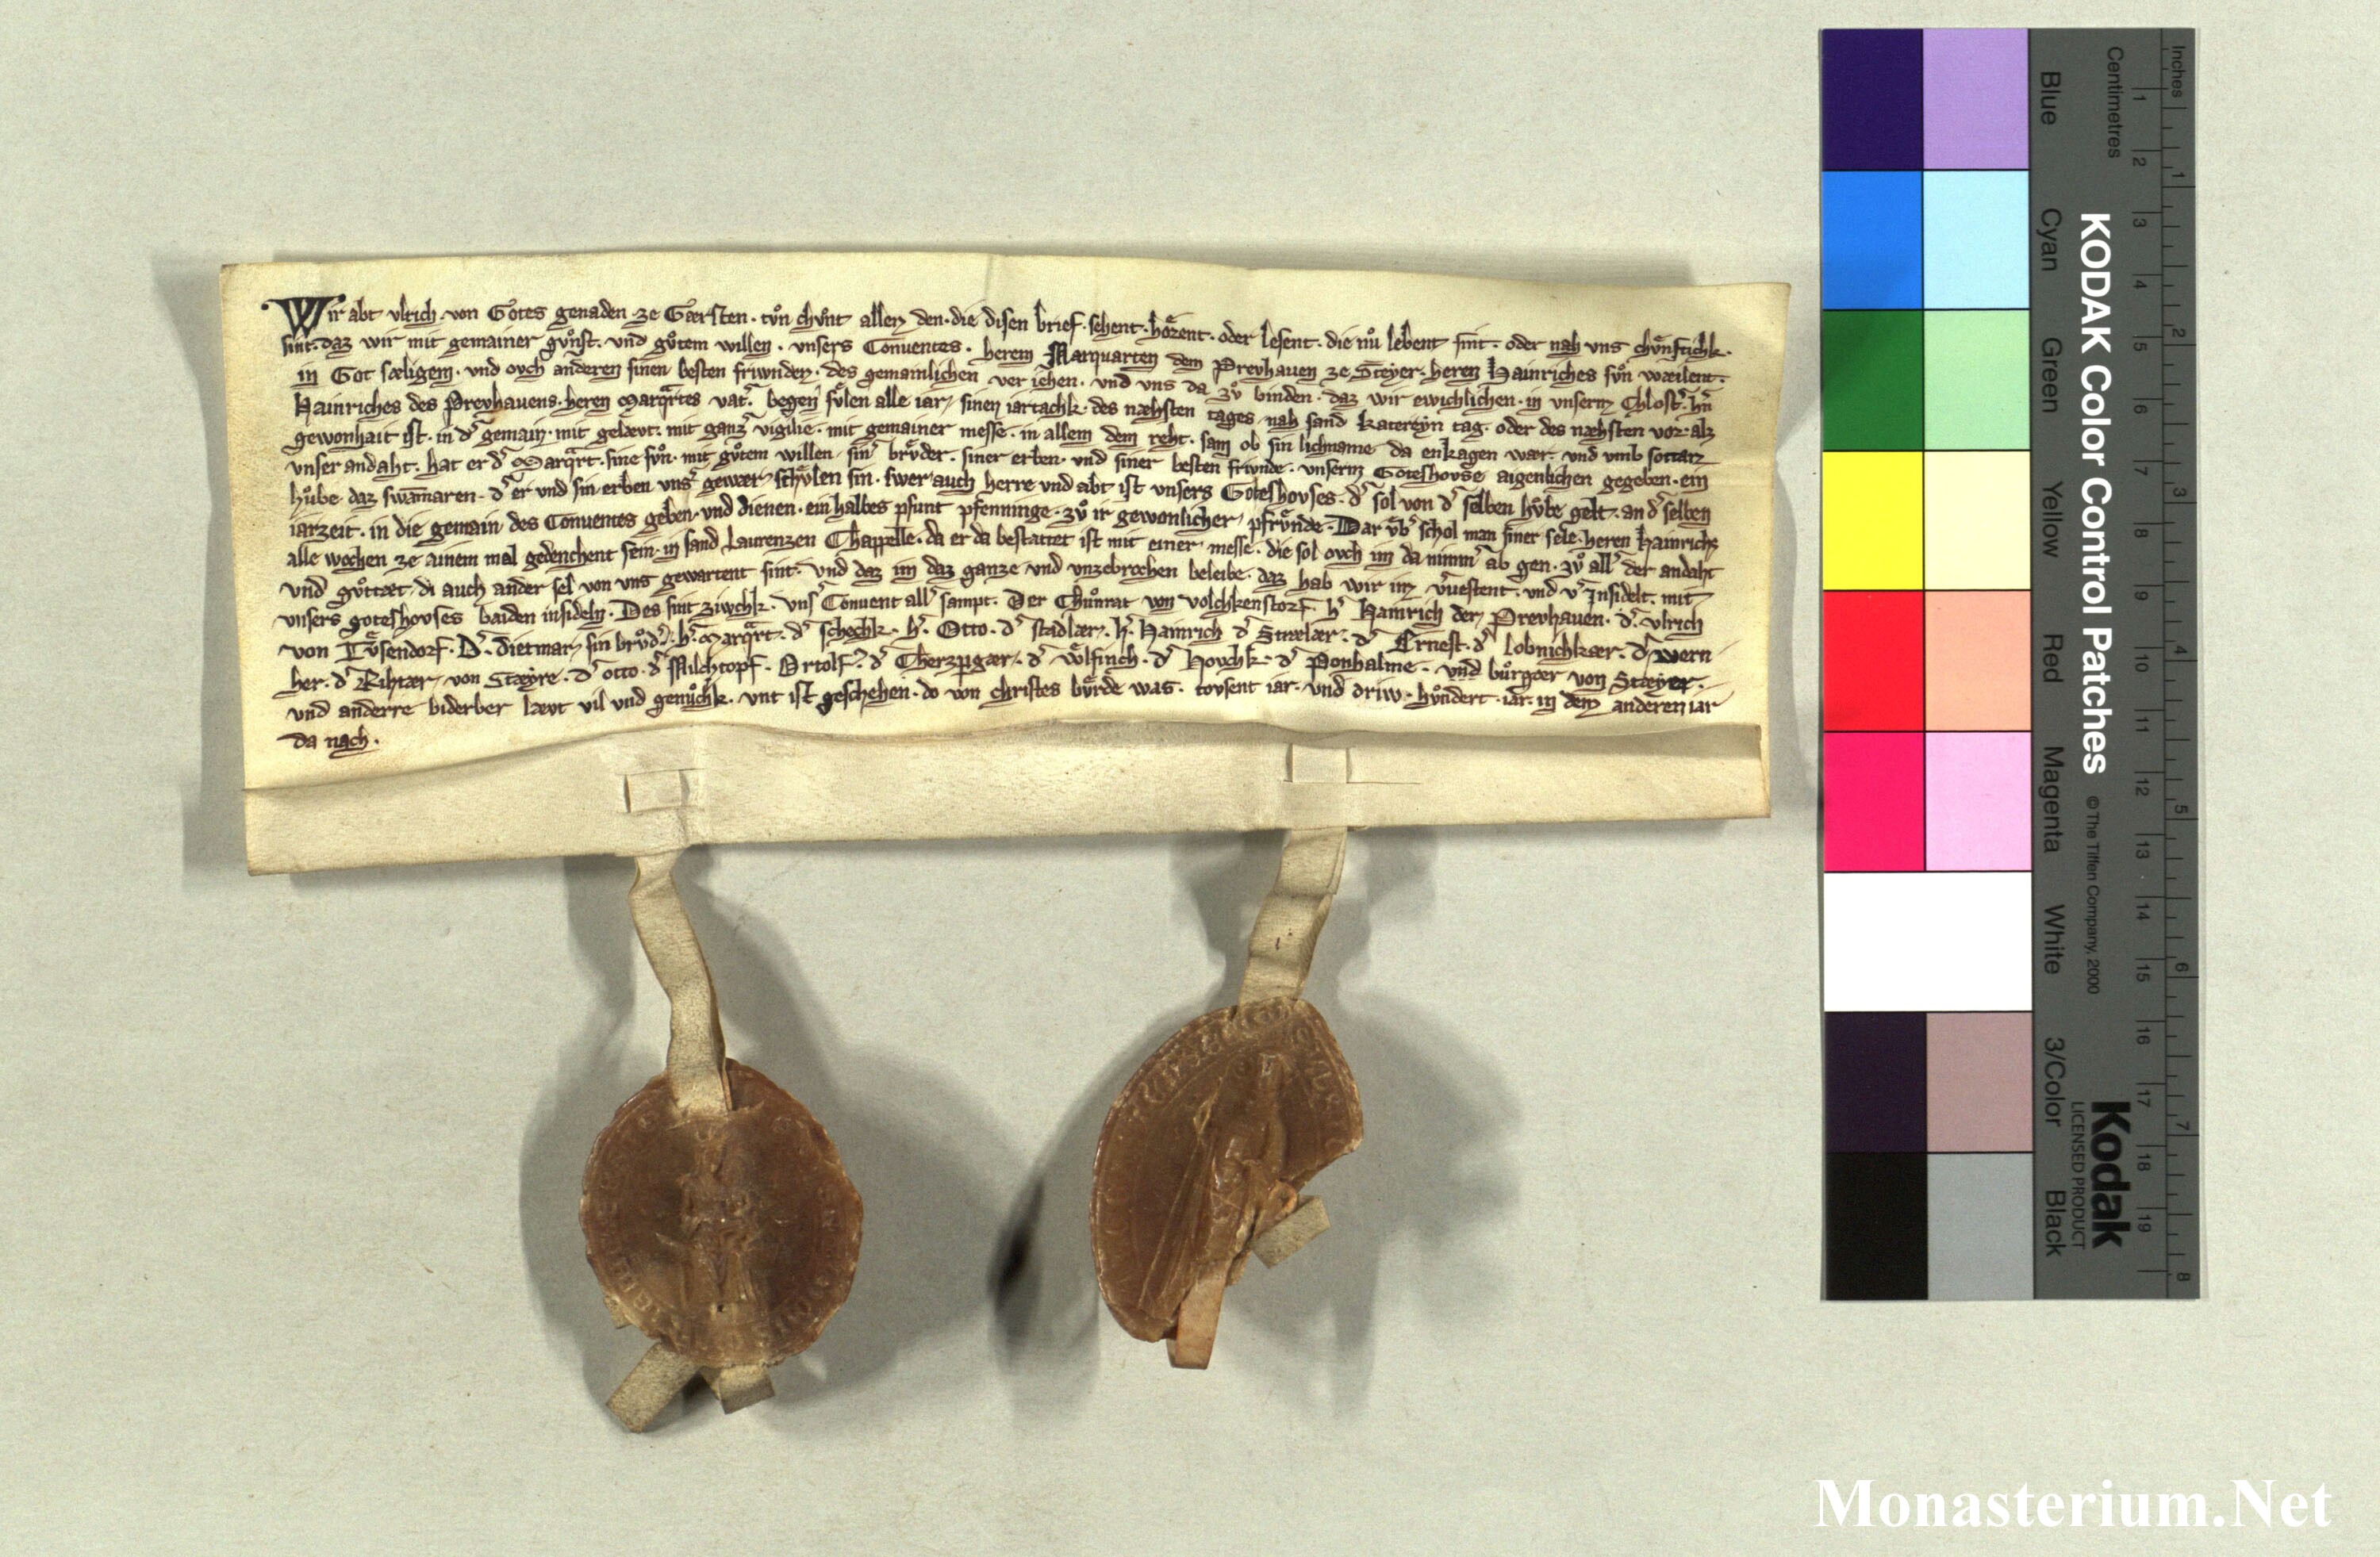 Wir abt Ulrich. von Gotes genaden ze Gærsten. tuͦn chuͦnt allen den. die disen brief. sehent. hoͤrent. oder lesent. die nuͦ lebent sint. oder nah uns chuͤnftichk.
sint. daz wir mit gemainer guͦnst. und guͦtem willen. unsers Conuentes. herem Marquarten dem Prevhauen ze Steyer. heren Hainriches suͦn wæilent.
in Got sæligem. und ovch anderen sinen besten friwnden. des gemainlichen ver iehen. und uns da zuͦ binden. daz wir ewichlichen. in unserm Chlost͛. h͛n
Hainriches des Prevhavens. heren Marq̈rtes vat͛. begen suͤlen alle iar sinen iartachk. des næhsten tages nah sand Katereyn tag. oder des næhsten vor. alz
gewonhait ist. in d͛ gemain. mit gelævt. mit ganz͛ vigilie. mit gemainer messe. in allem dem reht. sam ob sin lichname da enkagen wær. und umb sottanz
unser andaht. hat er d͛ Marq̈rt. sine suͦn. mit guͦtem willen sin͛ bruͤder. siner erben. und siner besten friwnde. unserm Goteshovse aigenlichen gegeben. ein
huͦbe daz swāmaren. d͛ er und sin erben uns͛ gewær schuͤlen sin. swer auch herre und abt ist unsers Goteshovses. d͛ sol von d͛ selben huͦbe gelt. an d͛ selben
iarzeit. in die gemain des Conuentes geben. und dienen. ein halbes pfunt pfenninge. zuͦ ir gewonlicher pfruͤnde. Dar ub͛ schol man siner sele. heren Hainrichs
alle wochen ze ainem mal gedenchent sein. in sand Laurenzen Chappelle. da er da bestattet ist mit einer messe. die sol ovch im da nimm͛ ab gen. zuͦ all͛ der andaht
und guͦttæt. di auch ander sel von uns gewartent sint. Und daz im daz ganze und unzebrochen beleibe. daz hab wir im v͛uestent. und v͛ Jnsidelt. mit
unsers goteshovses baiden insideln. Des sint ziwchk. Uns͛ Conuent all͛ sampt. Der Chuͦnrat von Volchkenstorf. h͛ Hainrich der Prevhauen. d͛. Ulrich
von Tuͤsendorf. D͛. dietmar sin bruͦd͛. h͛. Marq̈rt. d͛ schechk. h͛. Otto. d͛ stadlær. h͛. Hainrich d͛ Strælær. d͛ Ernest. d͛ lobnichkær. d͛ wern
her. d͛ Rihtær von Stæyre. d͛ otto. d͛ Milchtopf. Ortolf. d͛ Cherzpgær. d͛ woͤlfinch. d͛ Hovchk. d͛ Ponhalme. und buͦrgær von Stæyer.
und anderre biderber lævt vil und genuͦchk. unt ist geschehen. do von christes buͤrde was. tovsent iar. und driw. huͦndert. iar. in dem anderen iar
da nach.
KODAK Color Control Patches
© The Tiffen Company, 2000
Kodak
LICENSED PRODUCT
Inches 1 2 3 4 5 6 7 8
Centimetres 1 2 3 4 5 6 7 8 9 10 11 12 13 14 15 16 17 18 19
Blue
Cyan
Green
Yellow
Red
Magenta
White
3/Color
Black
Monasterium.Net